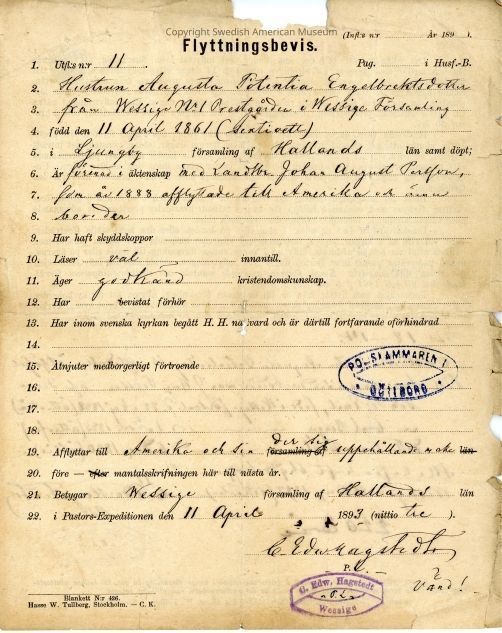 Copyright Swedish American Museum
Flyttningsbevis.
(Infl.: n:r År 189 ).
1. Utfl.: n:r 11. Pag. i Husf.-B.
2. Hustrun Augusta Potentia Engelbrektsdotter
3. från Wessige N:1 Prestgården i Wessige Församling
4. född den 11 April 1861 (sextioett)
5. i Ljungby församling af Hallands län samt döpt;
6. Är förenad i äktenskap med Landtbr. Johan August
7. som år 1888 afflyttade till Amerika och ännu
8. bor der
9. Har haft skyddskoppor
10. Läser väl innantill.
11. Äger godkänd kristendomskunskap.
12. Har bevistat förhör
13. Har inom svenska kyrkan begått H. H. nattvard och är därtill fortfarande oförhindrad
14.
15. Åtnjuter medborgerligt förtroende
16.
17.
18.
POLISKAMMAREN I
GÖTEBORG
19. Afflyttar till Amerika och sin der sig församling af uppehållande make län
20. före — efter mantalsskrifningen här till nästa år.
21. Betygar Wessige församling af Hallands län
22. i Pastors-Expeditionen den 11 April 1893 (nittio tre).
C. Edw Hagstedt
P.
Vänd!
C. Edw. Hagstedt
Wessige
Blankett N:r 426.
Hasse W. Tullberg, Stockholm. — C. K.